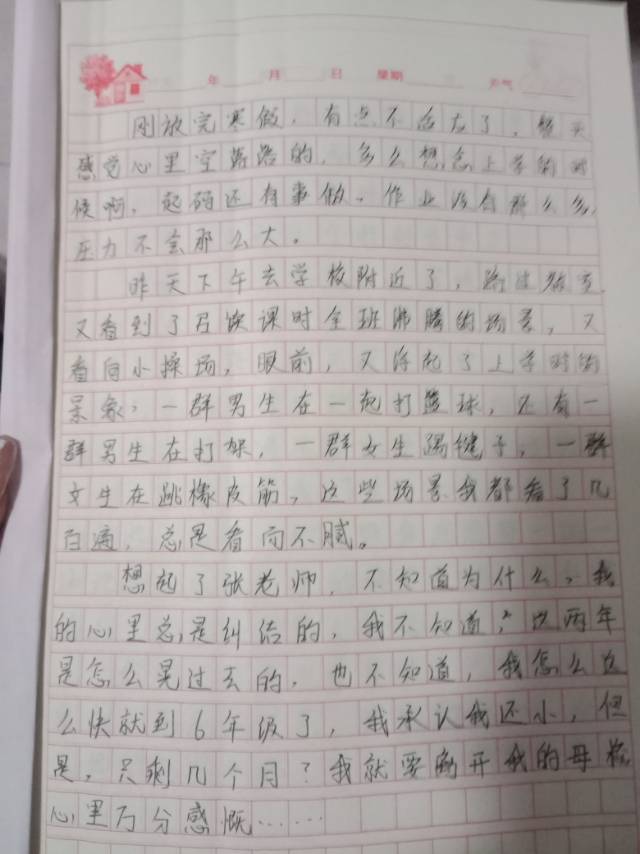 年 月 日 星期 天气
刚放完寒假,有点不适应了,整天
感觉心里空荡荡的,多么想念上学的时
候啊,起码还有事做。作业没有那么多,
压力不会那么大。
昨天下午去学校附近了,路过教室,
又看到了 课时全班沸腾的场景,又
看向小操场,眼前,又浮起了上学时的
景象,一群男生在一起打篮球,还有一
群男生在打架,一群女生踢毽子,一群
女生在跳橡皮筋,这些场景我都看了几
百遍,总是看而不腻。
想起了张老师,不知道为什么,我
的心里总是纠结的,我不知道,这两年
是怎么晃过去的,也不知道,我怎么这
么快就到6年级了,我承认我还小,但
是,只剩几个月?我就要离开我的母校
心里万分感慨……